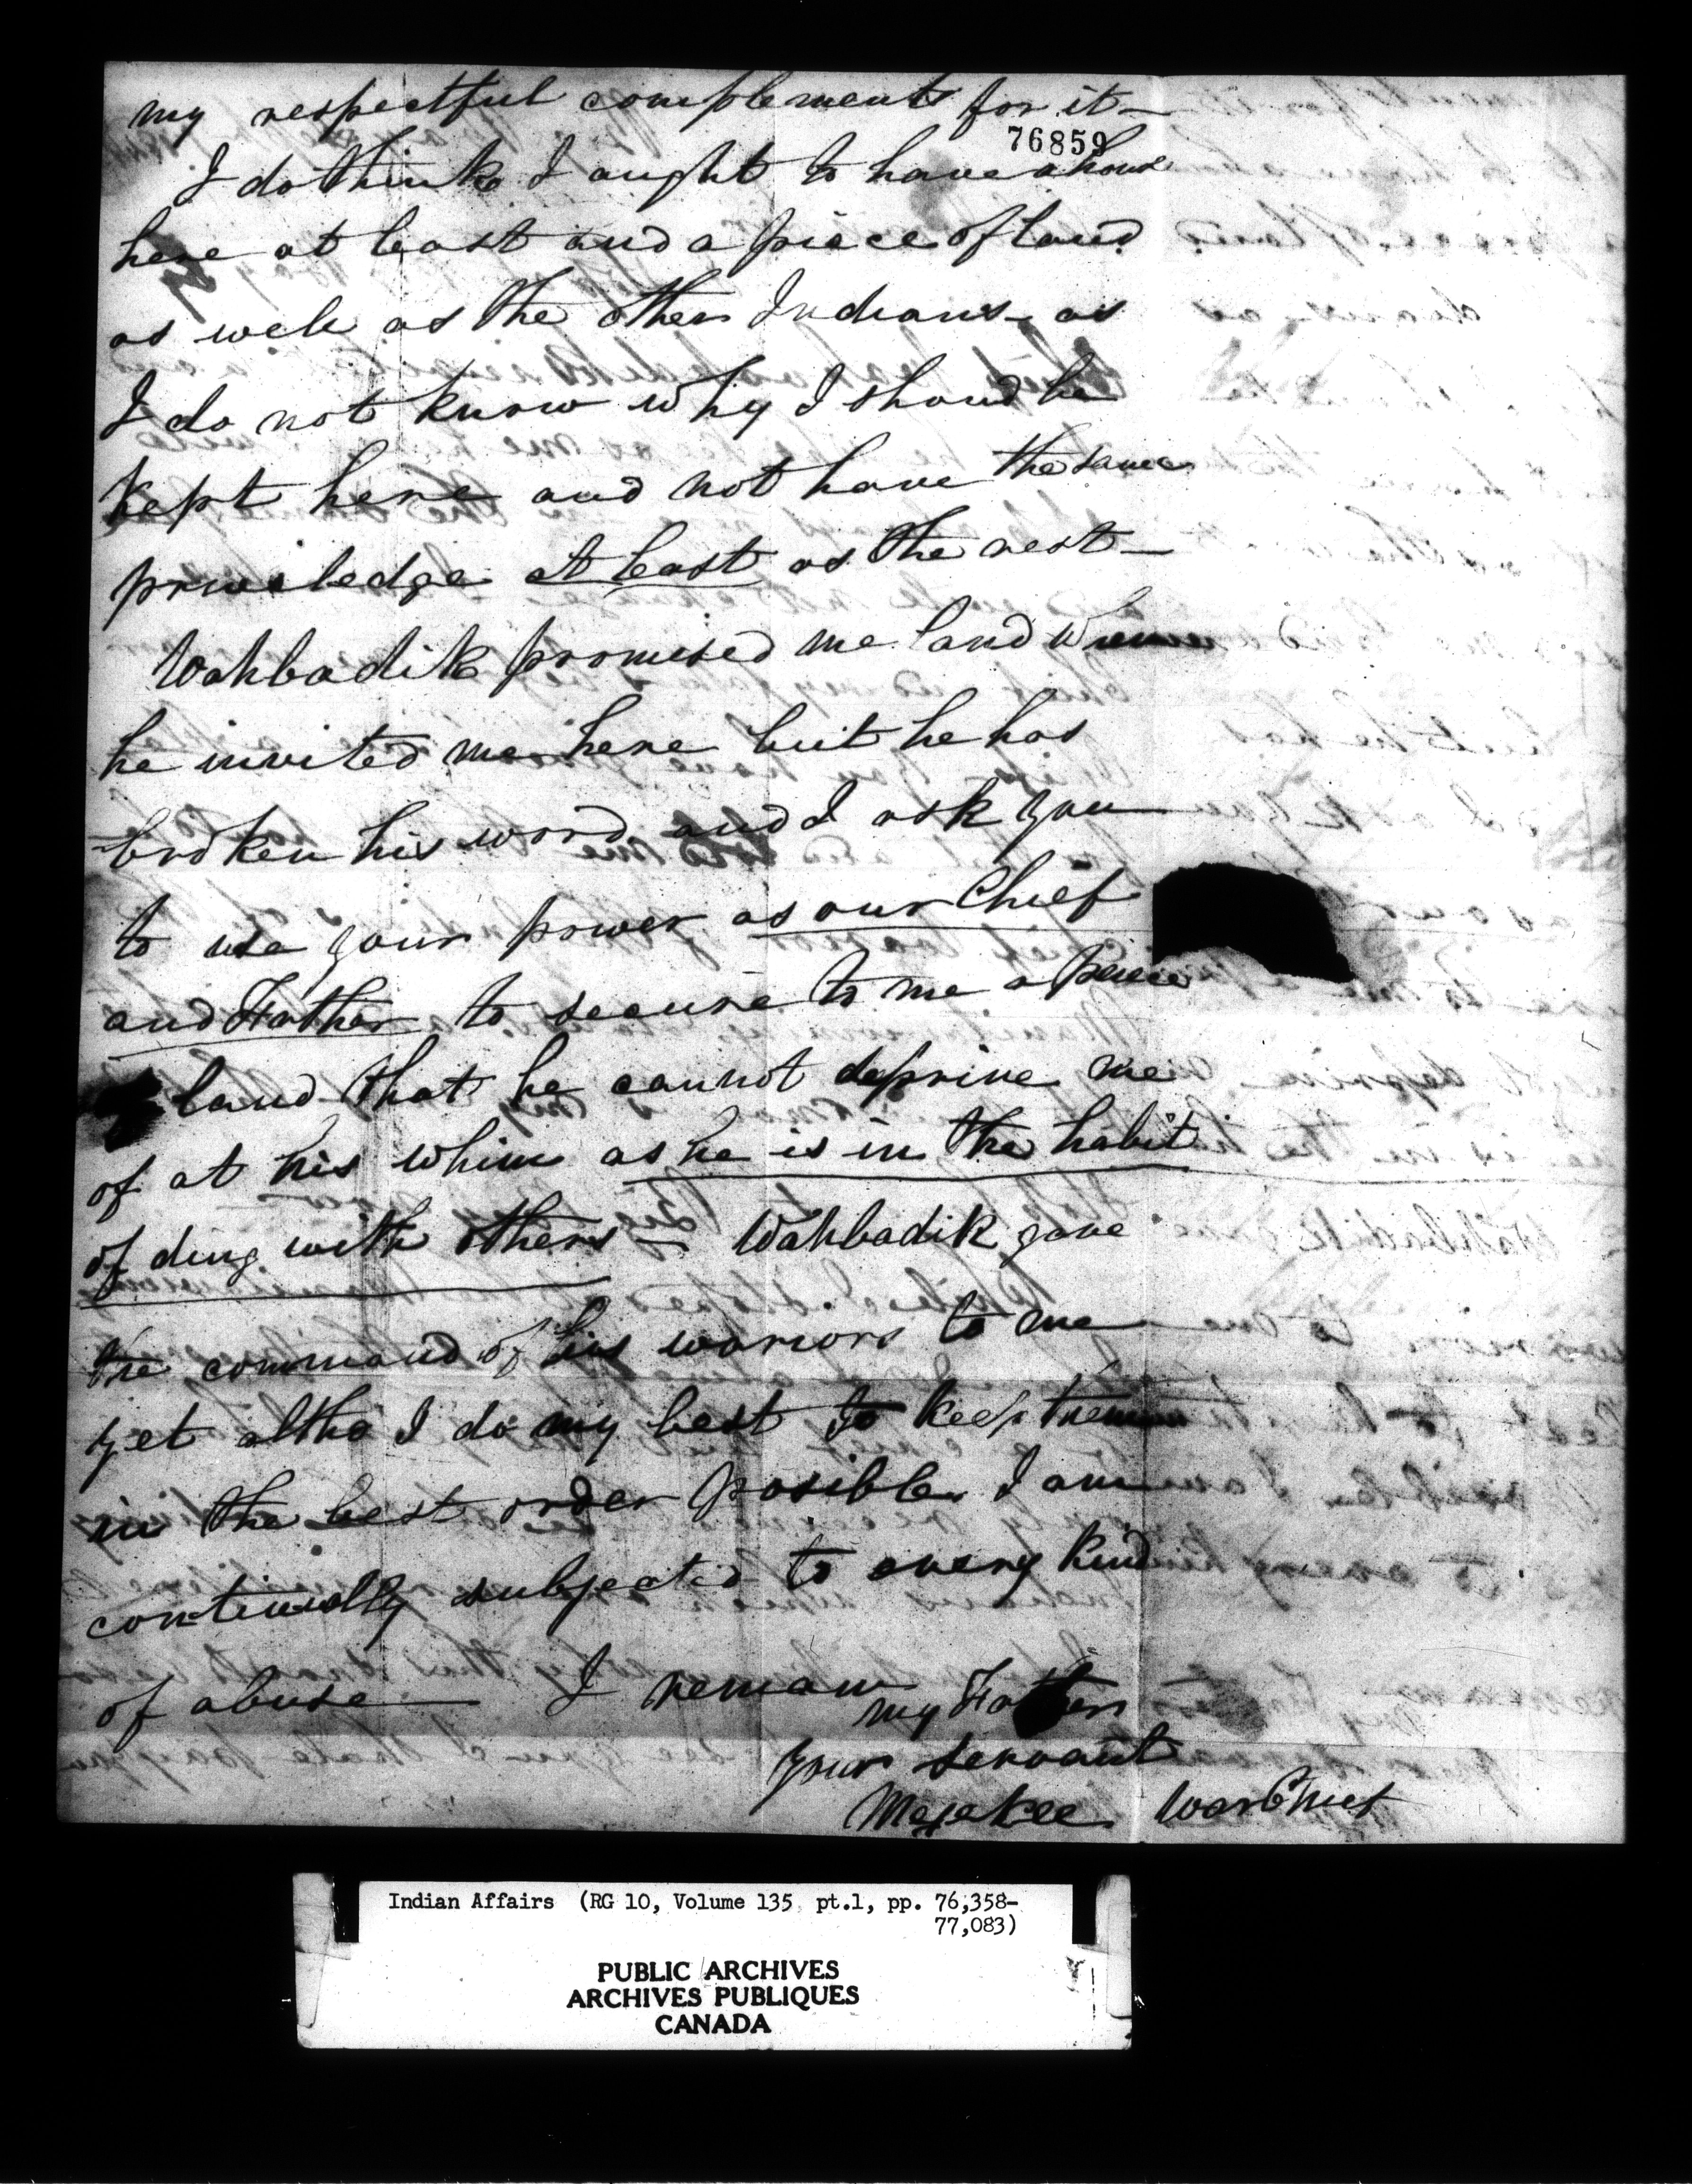 my respectful complements for it—
76859
I do think I ought to have a house
here at least and a piece of land
as well as the other Indians— as
I do not know why I shoud be
kept here and not have the same
priviledge at least as the rest—
Wahbadik promised me land when
he invited me here but he has
broken his word and I ask you
to use your power as our Chief
and Father to secure to me a peice
land that he cannot deprive me
of at his whim as he is in the habit
of ding with others— Wahbadik gave
the command of his wariors to me
yet altho I do my best to keep them
in the best order posible I am
continually subjected to every kind
of abuse— I remain
my Father
your servant
War Chief
Indian Affairs (RG 10, Volume 135 pt.1, pp. 76,358-
77,083)
PUBLIC ARCHIVES
ARCHIVES PUBLIQUES
CANADA